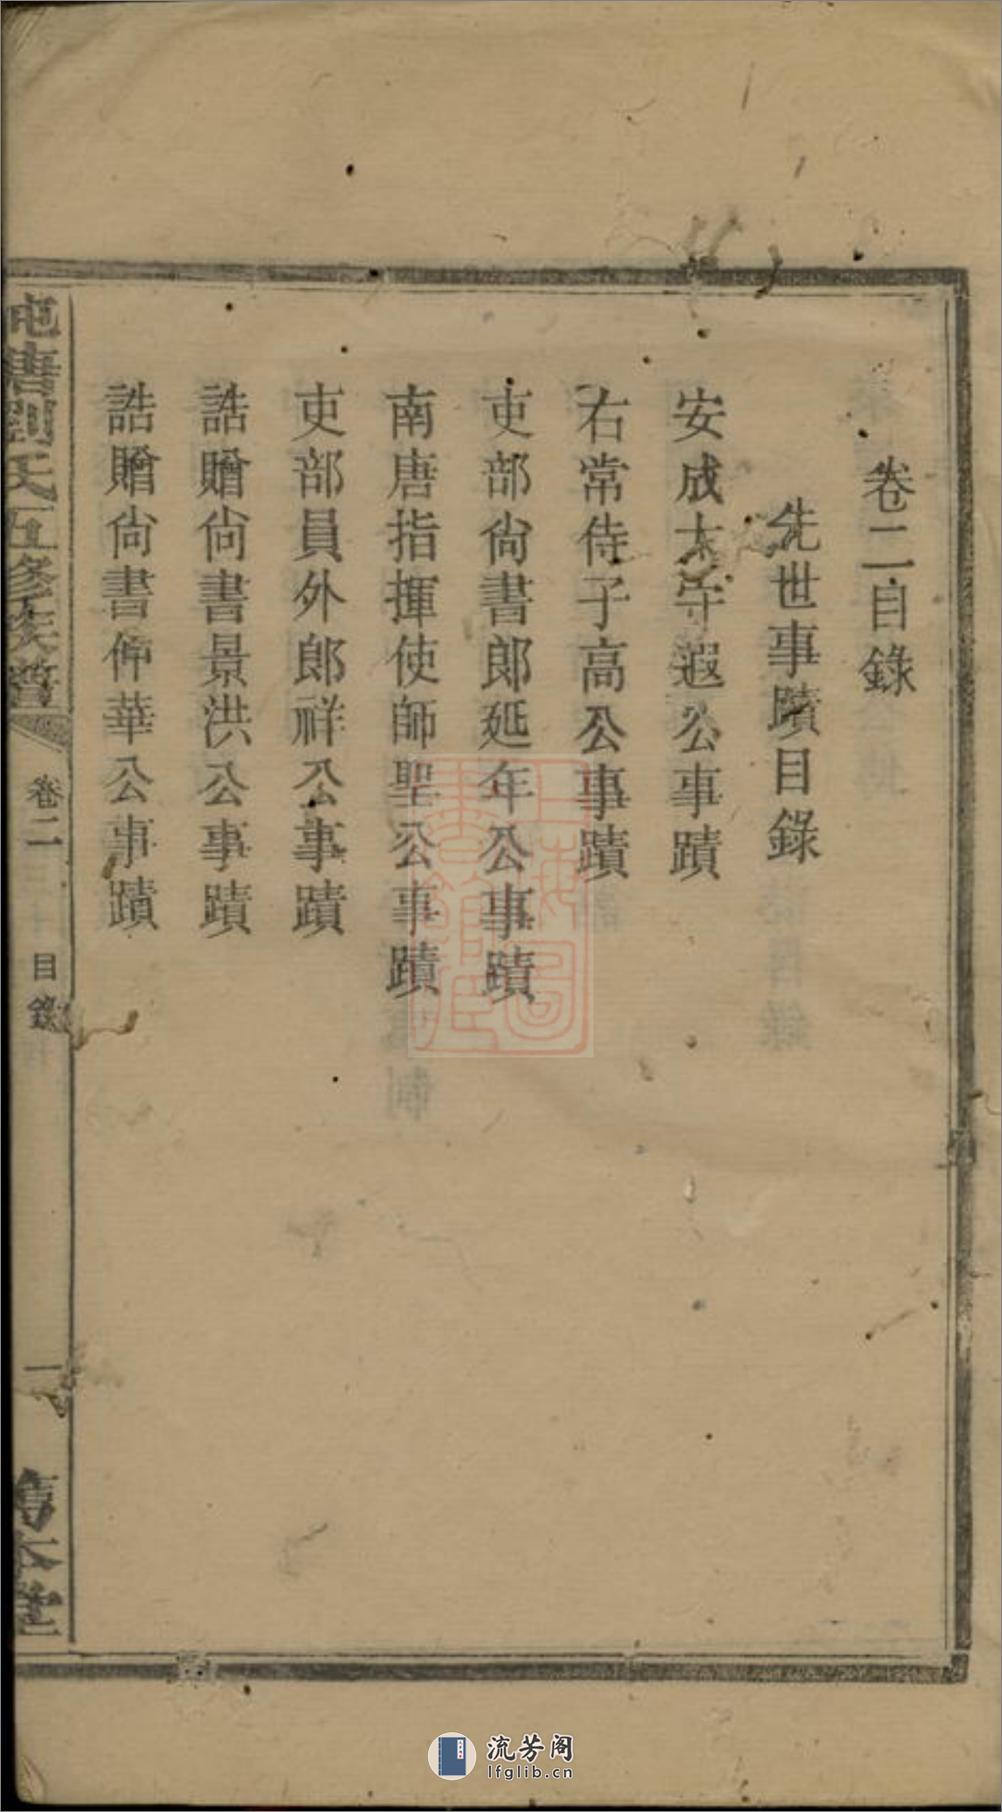 卷二目錄
先世事蹟目錄
安成太守遐公事蹟
右常侍子高公事蹟
吏部尙書郎延年公事蹟
南唐指揮使師聖公事蹟
吏部員外郎祥公事蹟
誥贈尙書景洪公事蹟
誥贈尙書仲華公事蹟
塘劉氏五修族譜
卷二
目錄
一
本堂
上海圖書館藏
流芳阁
lfglib.cn